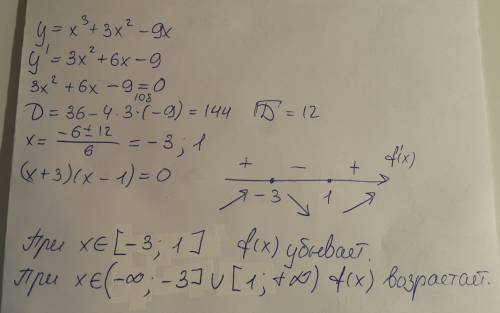 y = x³ + 3x² - 9x
y' = 3x² + 6x - 9
3x² + 6x - 9 = 0
108
D = 36 - 4 · 3 · (-9) = 144 √D = 12
x = (-6 ± 12)/6 = -3 ; 1
(x + 3)(x - 1) = 0
+ - + f'(x)
-3 1
При x ∈ [-3; 1] f(x) убывает.
При x ∈ (-∞; -3] ∪ [1; +∞) f(x) возрастает.